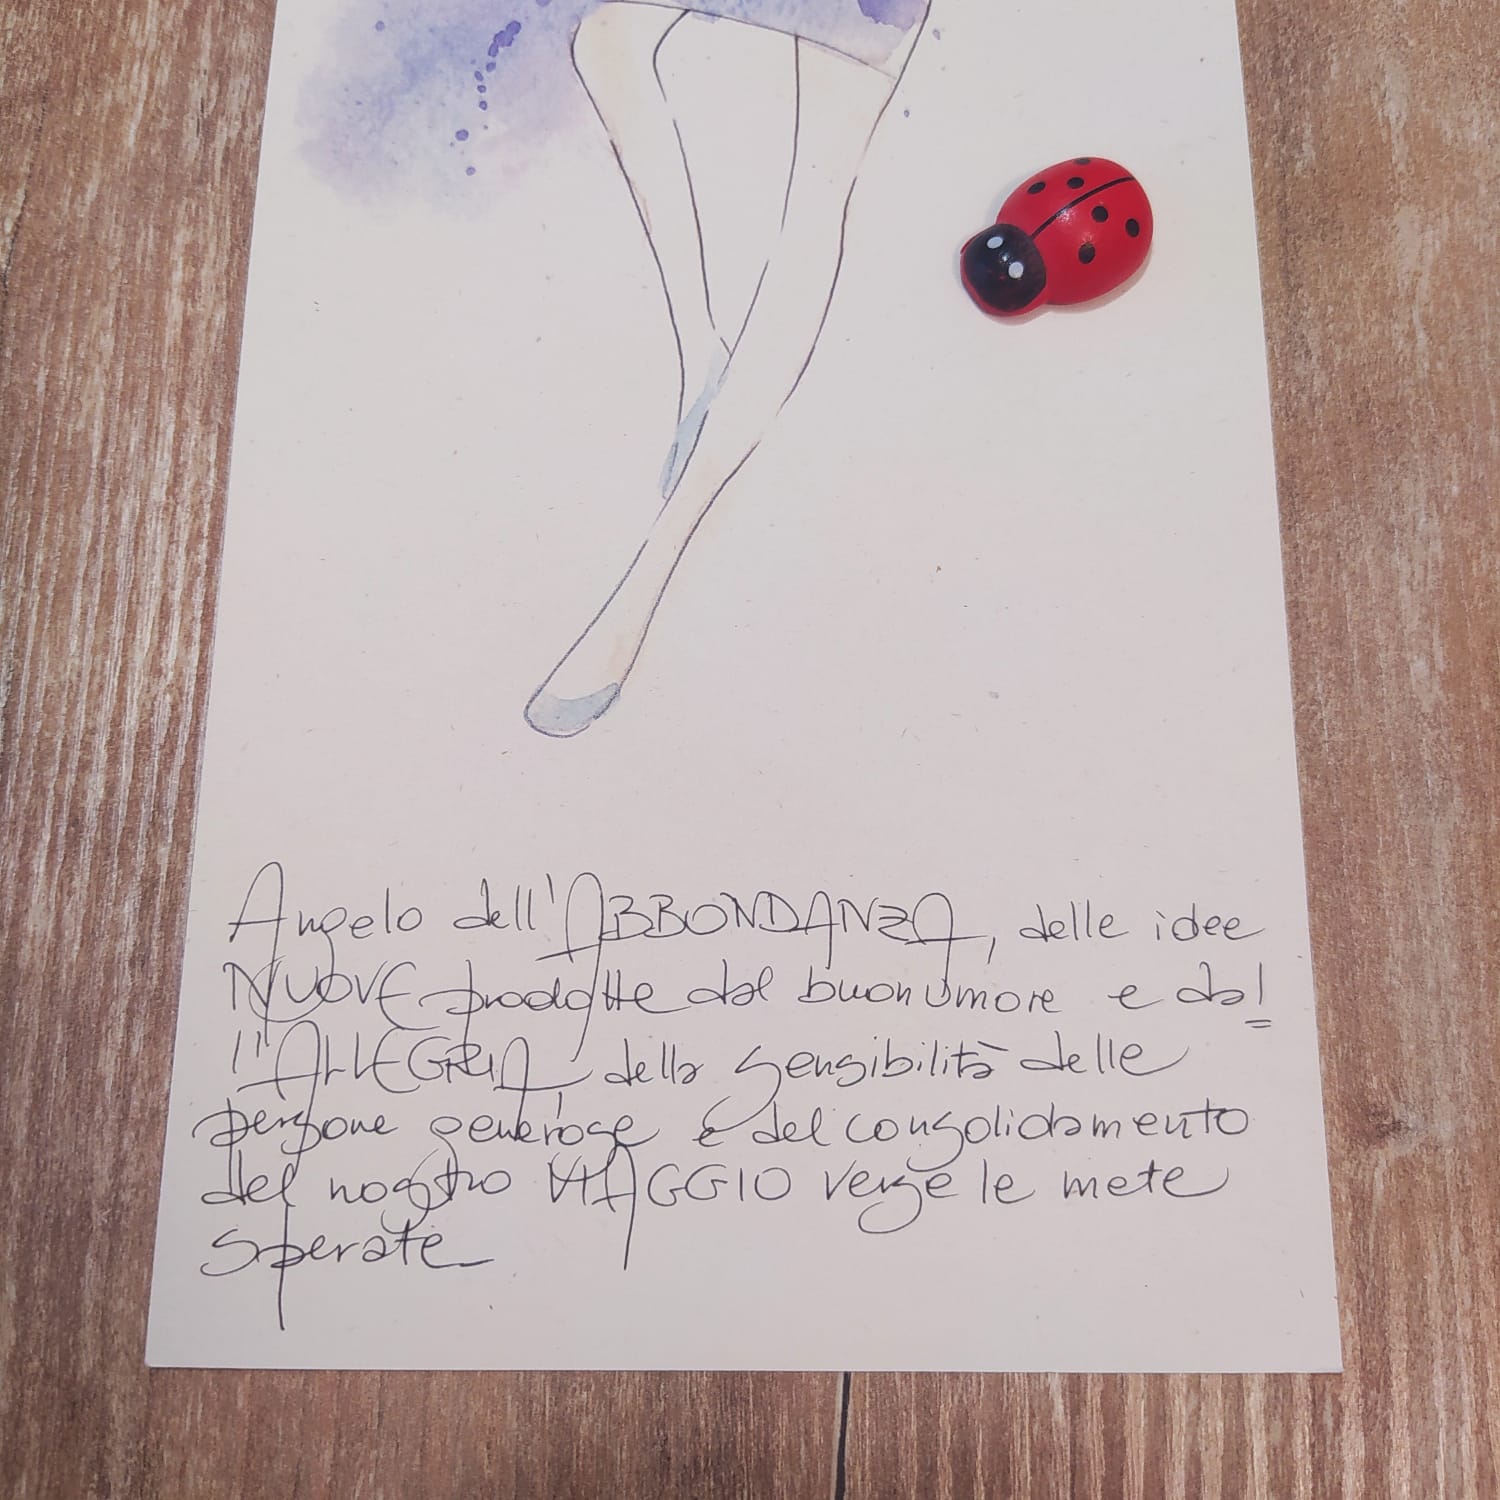 Angelo dell'ABBONDANZA, delle idee
NUOVE prodotte dal buonumore e dal
l'ALLEGRIA della sensibilità delle
persone generose e del consolidamento
del nostro VIAGGIO verso le mete
sperate